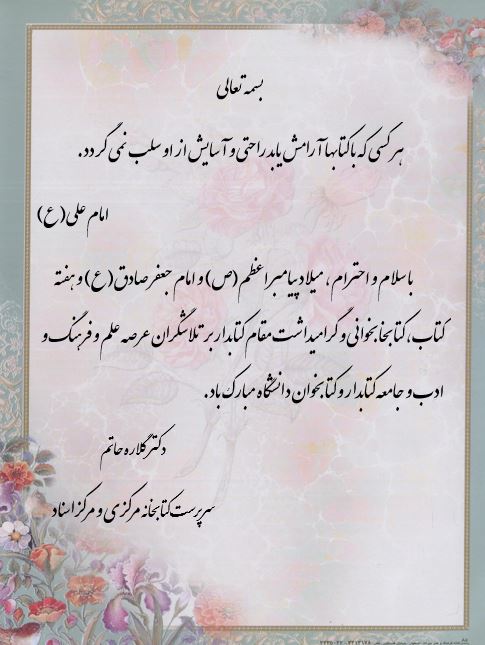 بسمه تعالی
هر کسی که با کتابها آرامش یابد راحتی و آسایش از او سلب نمی گردد.
امام علی (ع)
با سلام و احترام ، میلاد پیامبر اعظم (ص) و امام جعفر صادق (ع) و هفته
کتاب، کتابخابخوانی و گرامیداشت مقام کتابدار بر تلاشگران عرصه علم و فرهنگ و
ادب و جامعه کتابدار و کتابخوان دانشگاه مبارک باد.
دکتر گلاره حاتم
سرپرست کتابخانه مرکزی و مرکز اسناد